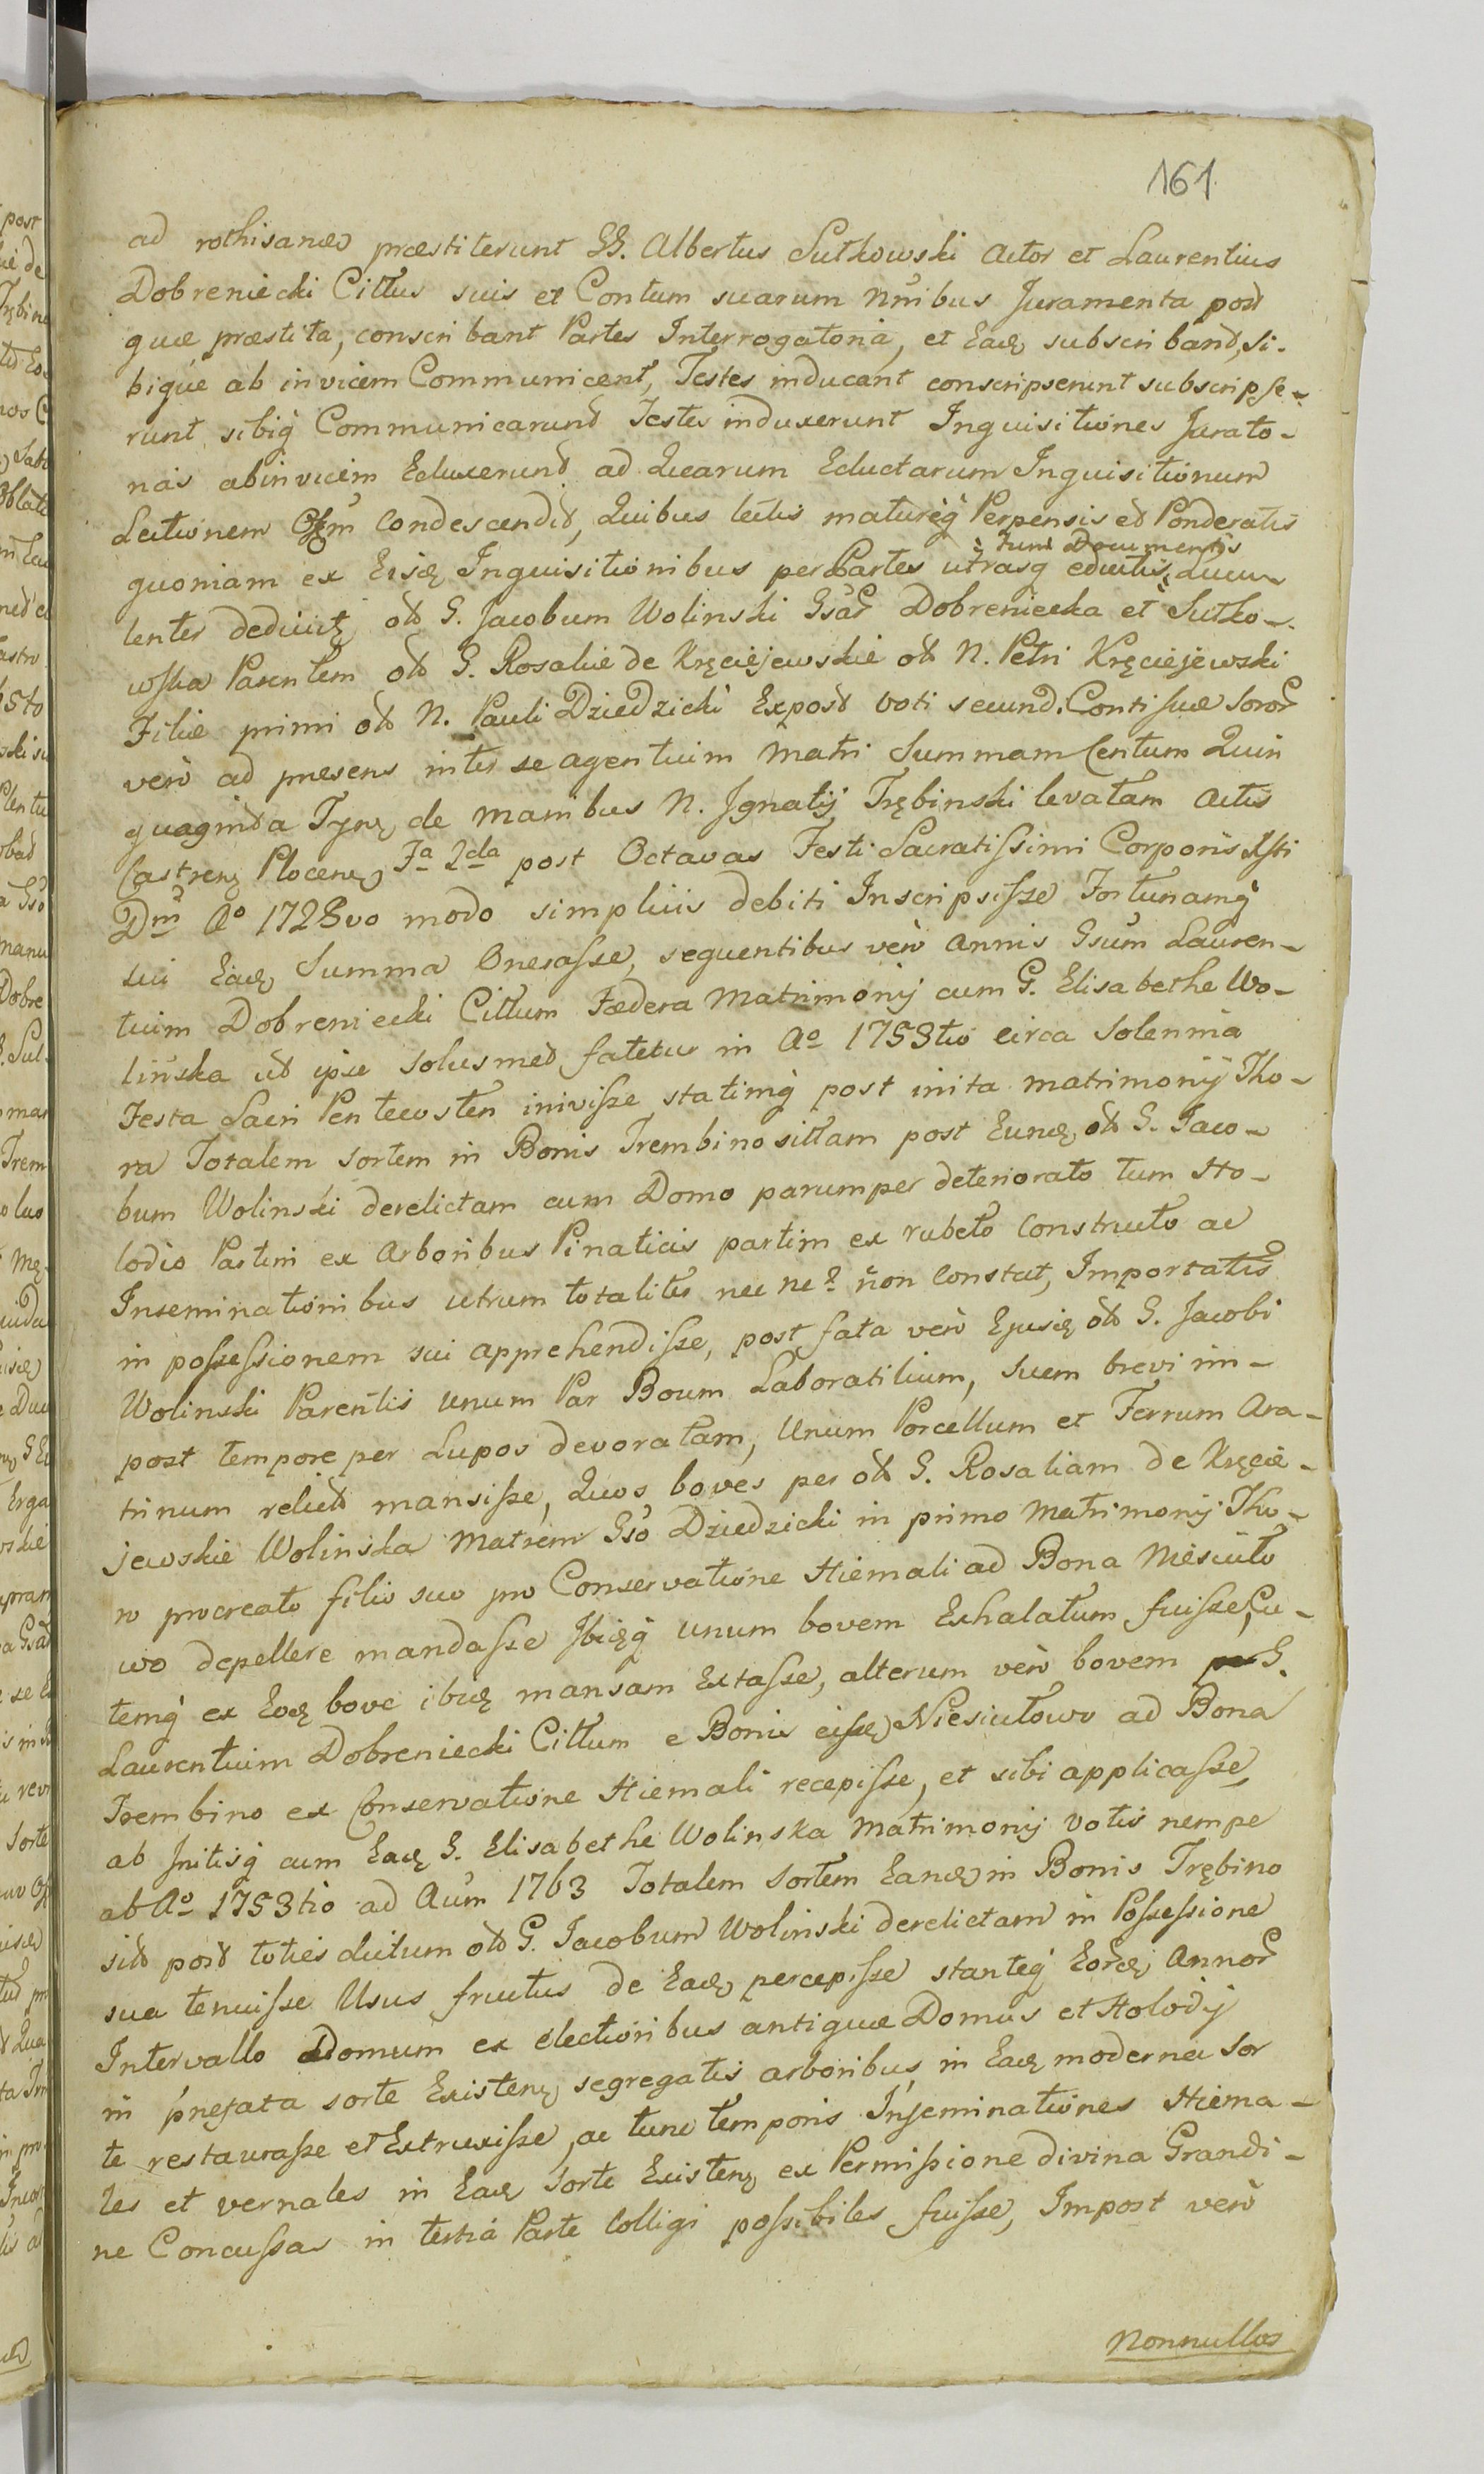 161
ad rothisandũ præstiterunt GG. Albertus Sutkowski Actor et Laurentius
Dobreniecki Cittus suis et Contum suarum nnibus Juramenta post
quæ præstita, conscribant Partes Interrogatoria, et Eadẽ subscribant, si-
bique ab invicem Communicent, Testes inducant conscripserunt subscripse-
runt sibiq Communicarunt Testes induxerunt Inquisitiones Jurato-
rias abinvicem Eduxerunt ad Quarum Eductarum Inquisitionum
Lectionem Offm Condescendit, Quibus lectis matureq Perpensis et Ponderatis
quoniam ex Eisdẽ Inquisitionibus per Partes utrasq eductis, Lucu-
Tum Documentis
lenter deducit, olt G. Jacobum Wolinski Gsar Dobreniecka et Sutko-
wska Parentem olt G. Rosaliæ de Kręciejewskie olt N. Petri Kręciejewski
Filiæ primi olt N. Pauli Dziedzicki Expost voti secund. Contisuæ Soror
vero ad præsens inter se agentium Matri Summam Centum Quin
quaginta Tynf de manibus N. Ignatij Trębinski levatam Actis
Castren Plocen Fa 2da post Octavas Festi Sacratissimi Corporis Xsti
Dni Ao 1728vo modo simplicis debiti Inscripsisse Fortunamq
sui Eadẽ Summa Onerasse, sequentibus vero annis Gsum Lauren-
tium Dobreniecki Cittum Fædera Matrimonij cum G. Elisabethe Wo-
linska ut ipse solusmet fatetur in Ao 1753tio circa Solennia
Festa Sacri Pentecosten inivisse statimq post inita matrimonij Tho-
ra Totalem sortem in Bonis Trembino sittam post Eundẽ olt G. Jaco-
bum Wolinski derelictam cum Domo parumper deteriorato tum Sto-
lodio Partim ex Arboribus Pinaticis partim ex rubeto Constructo ac
Inseminationibus utrum totaliter nec ne? non Constat, Importatis
in possessionem sui apprehendisse, post fata vero Ejusdẽ olt G. Jacobi
Wolinski Parentis Unum Par Boum Laboratilium, Suem brevi im-
post tempore per Lupos devoratam, Unum Porcellum et Ferrum Ara-
trinum relict mansisse, Quos boves per olt G. Rosaliam de Kręcie-
jewskie Wolinska Matrem Gso Dziedzicki in primo Matrimonij Tho-
ro procreato filio suo pro Conservatione Hiemali ad Bona Niesiuto
wo depellere mandasse Ibidẽq unum bovem Exhalatum fuisse, Cu-
temq ex Eodẽ bove ibidẽ mansam Extasse, alterum vero bovem G.
Laurentium Dobreniecki Cittum e Bonis eisdẽ Niesiutowo ad Bona
Trembino ex Conservatione Hiemali recepisse, et sibi applicasse,
ab Initisq cum Eadẽ G. Elisabethe Wolinska Matrimonij Votis nempe
ab Ao 1753tio ad Aum 1763 Totalem sortem Eandẽ in Bonis Trębino
sitt post toties dictum olt G. Jacobum Wolinski derelictam in Possessione
sua tenuisse Usus fructus de Eadẽ percepisse stanteq Eordẽ Annor
Intervallo Domum ex electioribus antiquæ Domus et Stolodij
in præfata sorte Existenẽ segregatis arboribus in Eadẽ moderna Sor
te restaurasse et Extruxisse, ac tunc temporis Inseminationes Hiema-
les et vernales in Eadẽ Sorte Existenẽ ex Permissione divina Grandi-
ne Concussas in tertia Parte Colligi possibiles fuisse, Impost vero
Nonnullos